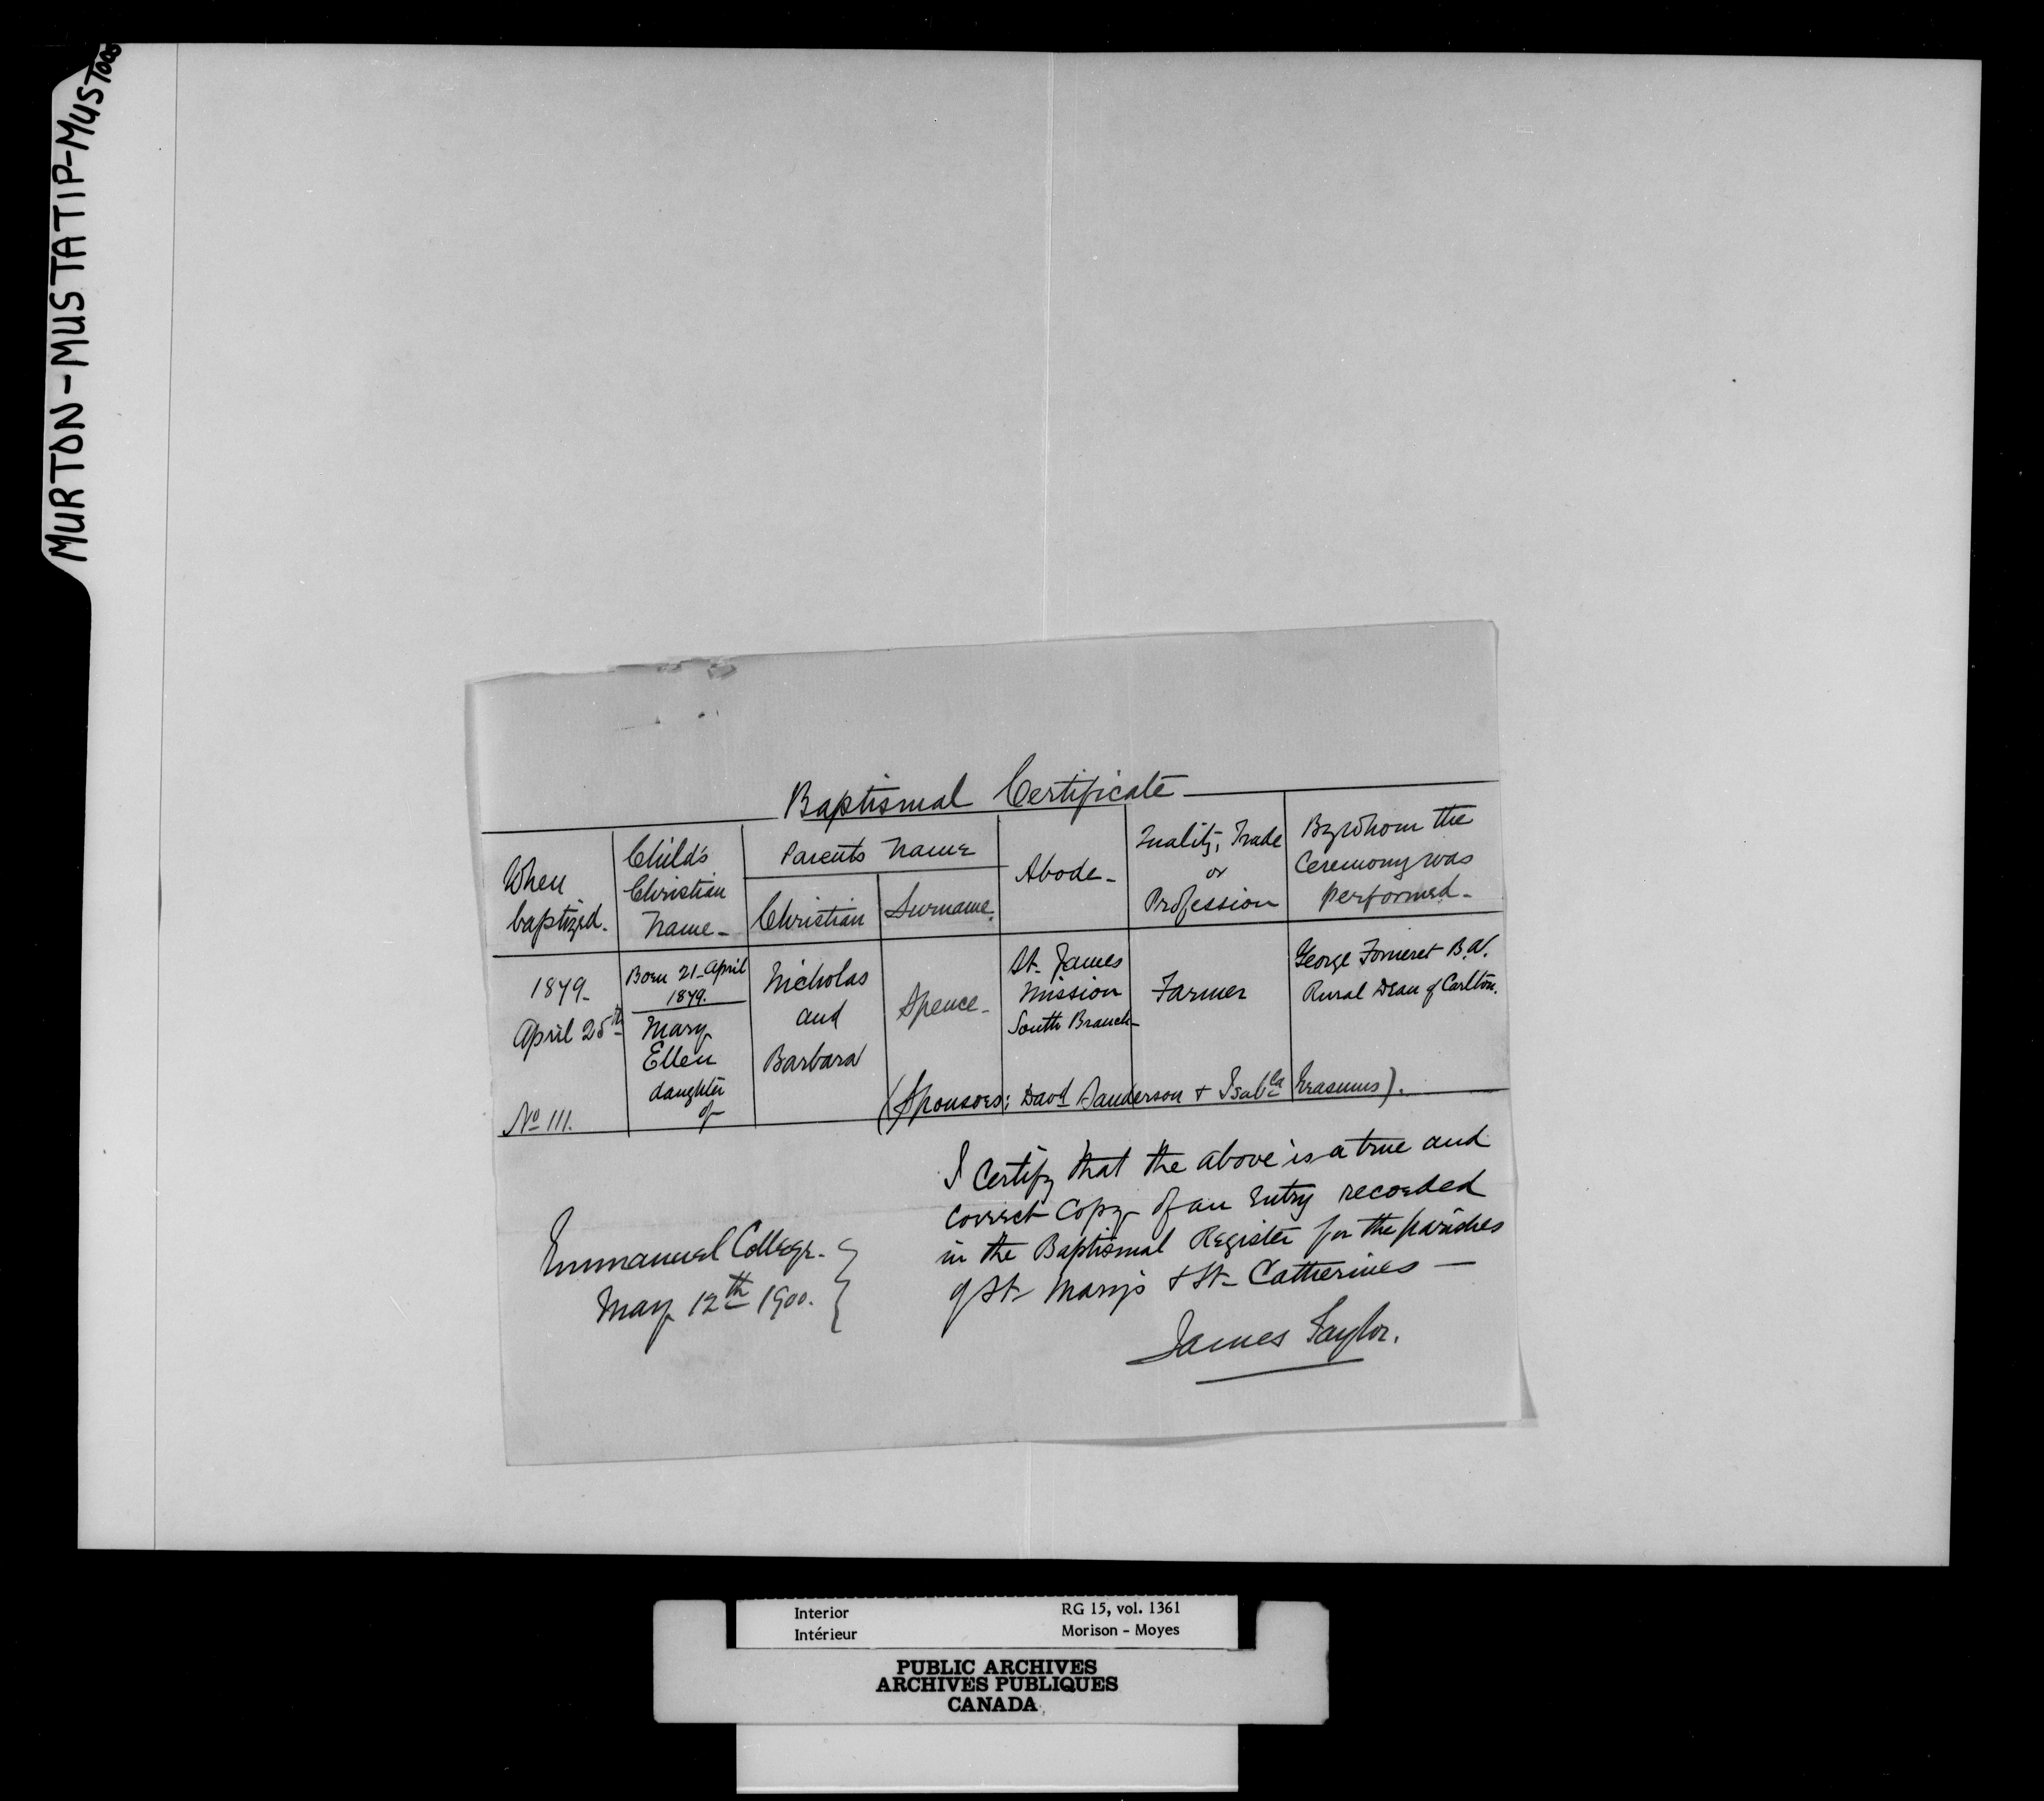 MURTON-MUSTATIP-MUSTOOS
Baptismal Certificate
When baptized.
Child's Christian Name
Parents Name
Christian
Surname.
Abode
Quality, Trade or Profession
By Whom the Ceremony was Performed
1879
April 25th
No 111.
Born 21 April
1879.
Mary
Ellen
daughter
of
Nicholas
and
Barbara
Spence
St. James
Mission
South Branch
Farmer
George Forneret B.A.
Rural Dean of Carlton.
(Sponsors: Davd Sanderson + Isabla Erasmus).
I Certify that the above is a true and
Correct Copy of an Entry recorded
in the Baptismal Register for the parishes
of St Mary's + St Catherines
James Taylor.
Emmanuel College.
May 12th 1900.
Interior
Intérieur
RG 15, vol. 1361
Morison - Moyes
PUBLIC ARCHIVES
ARCHIVES PUBLIQUES
CANADA